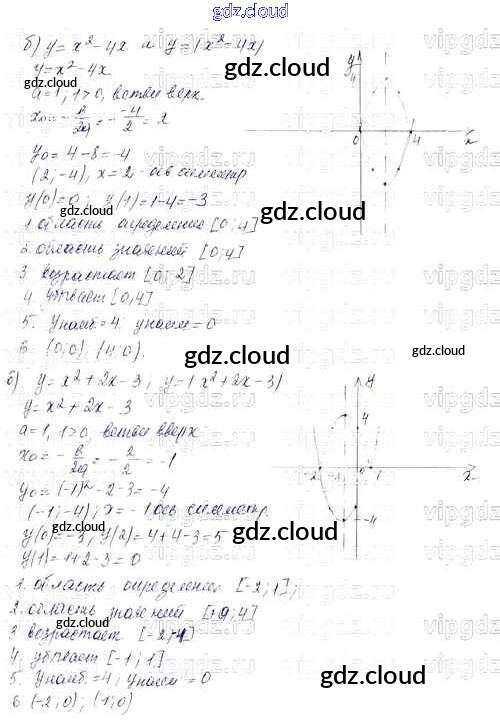 gdz.cloud
б) y = x² - 4x и y = |x² - 4x|
y = x² - 4x
a = 1, 1 > 0, ветви вверх.
x₀ = - в/2a = - -4/2 = 2
y₀ = 4 - 8 = -4
(2; -4), x = 2 - ось симметр
y(0) = 0; y(1) = 1 - 4 = -3
1. область определения [0; 4]
2. область значений [0; 4]
3. возрастает [0; 2]
4. убывает [0, 4]
5. Yнаиб. = 4; yнаим = 0
6. (0; 0), (4; 0).
y
4
0
4
x
б) y = x² + 2x - 3; y = |x² + 2x - 3|
y = x² + 2x - 3
a = 1, 1 > 0, ветви вверх
x₀ = - в/2a = - 2/2 = -1
y₀ = (-1)² - 2 - 3 = -4
(-1; -4); x = -1 ось симметр.
y(0) = -3; y(2) = 4 + 4 - 3 = 5
y(1) = 1 + 2 - 3 = 0
1. область определения [-2; 1];
2. область значений
3. возрастает
4. убывает [-1; 1]
5. Yнаиб. = 4; yнаим = 0
6 (-2; 0); (1; 0)
y
4
-2
-1
1
x
-4
gdz.cloud
gdz.cloud
gdz.cloud
gdz.cloud
gdz.cloud
gdz.cloud
gdz.cloud
gdz.cloud
gdz.cloud
gdz.cloud